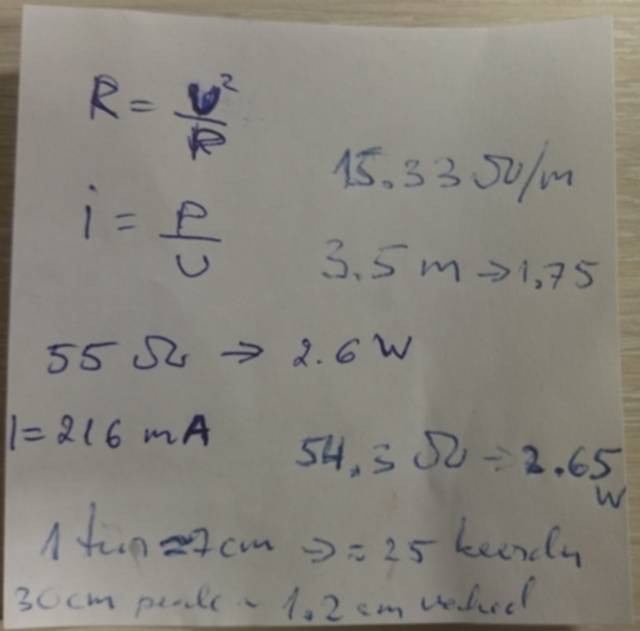 R = U²/P
15.33 Ω/m
i = P/U
3.5 m → 1,75
55 Ω → 2.6 W
I = 216 mA
54,3 Ω → 2.65 W
1 tiir ≈ 7 cm → ≈ 25 keerdu
30cm peale ~ 1.2 cm vahed